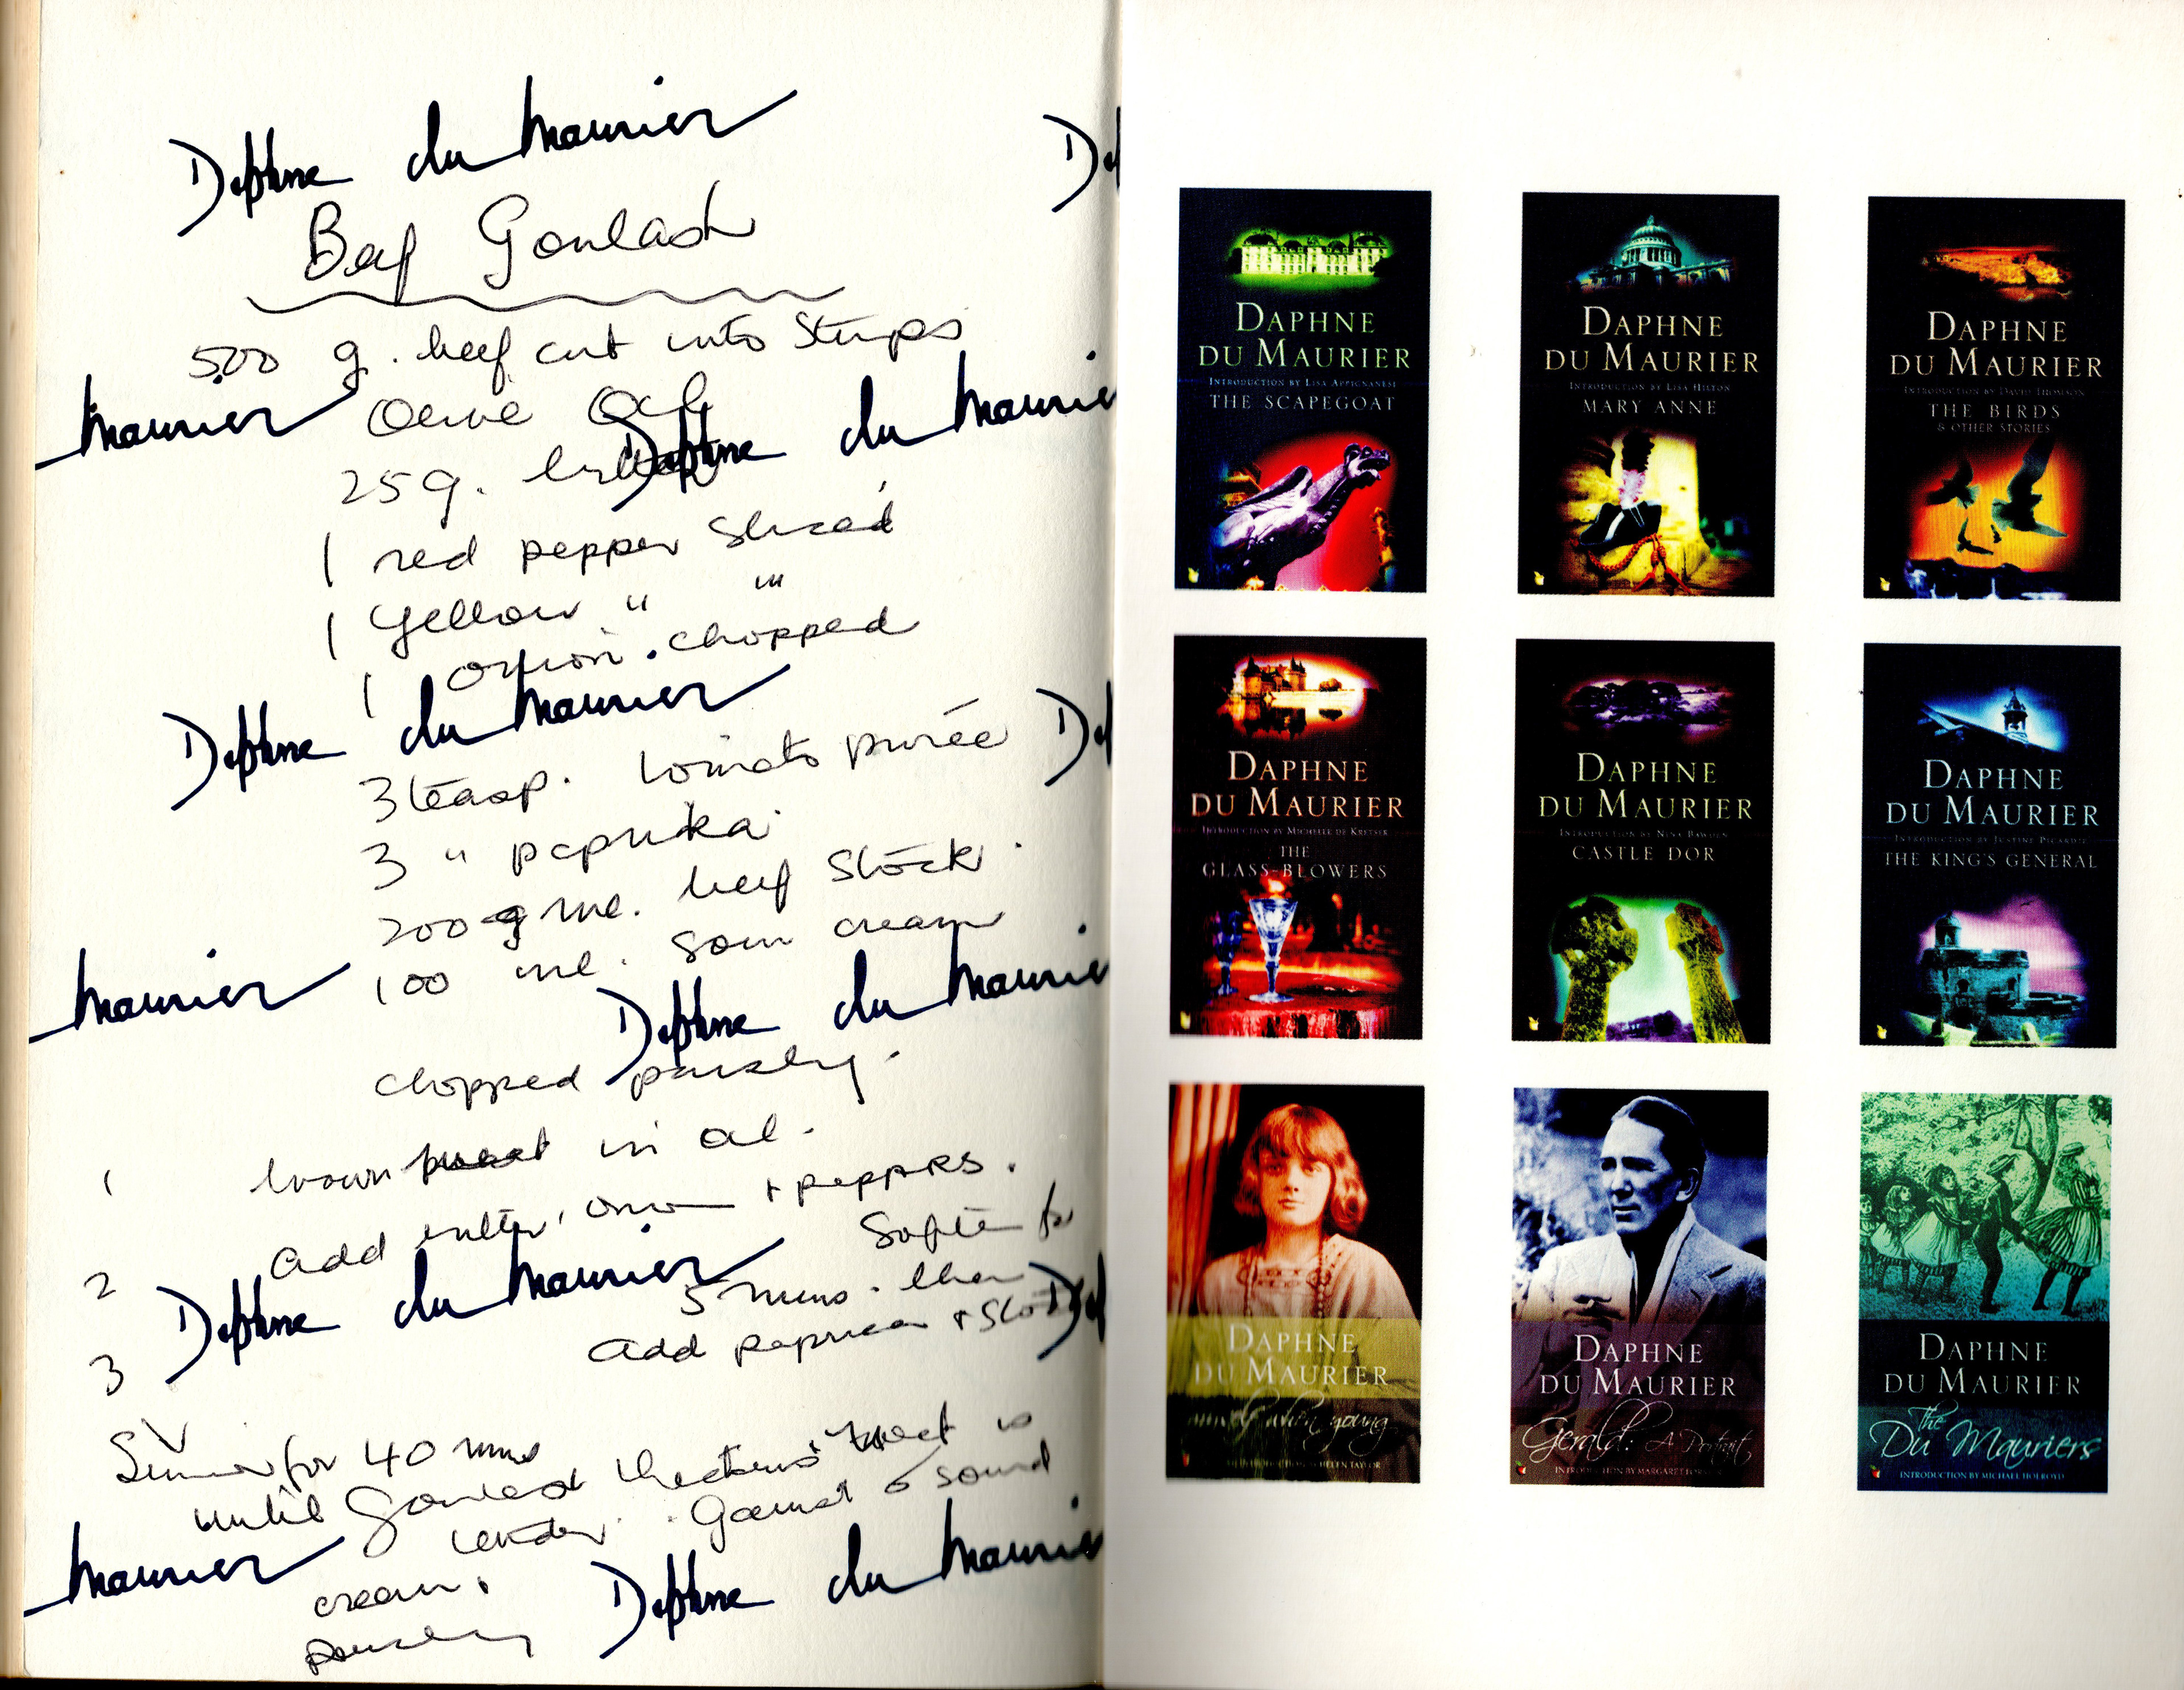 Daphne du Maurier
D
Beef Goulash
500 g. beef cut into strips
Maurier
Olive Oil
Daphne du Maurie
25g. butter
1 red pepper sliced
1 yellow " "
1 onion. chopped
Daphne du Maurier
D
3 teasp. tomato purée
3 " paprika
200 ml. beef stock.
100 ml. sour cream
Maurier
Daphne du Maurie
chopped parsley.
1 brown meat in oil.
2 Add butter, onion + peppers.
Soften for
5 mins. then
Daphne du Maurier
D
3 add paprika + sto
Simmer for 40 mins
until goulash thickens + meat is
tender. Garnish sour
cream.
Maurier
Daphne du Maurie
parsley
DAPHNE
DU MAURIER
INTRODUCTION BY LISA APPIGNANESI
THE SCAPEGOAT
DAPHNE
DU MAURIER
INTRODUCTION BY LISA HILTON
MARY ANNE
DAPHNE
DU MAURIER
INTRODUCTION BY DAVID THOMSON
THE BIRDS
& OTHER STORIES
DAPHNE
DU MAURIER
INTRODUCTION BY MICHELLE DE KRETSER
THE
GLASS-BLOWERS
DAPHNE
DU MAURIER
INTRODUCTION BY NINA BAWDEN
CASTLE DOR
DAPHNE
DU MAURIER
INTRODUCTION BY JUSTINE PICARDIE
THE KING'S GENERAL
DAPHNE
DU MAURIER
when young
HELEN TAYLOR
DAPHNE
DU MAURIER
Gerald: A Portrait
INTRODUCTION BY MARGARET
DAPHNE
DU MAURIER
The
Du Mauriers
INTRODUCTION BY MICHAEL HOLROYD